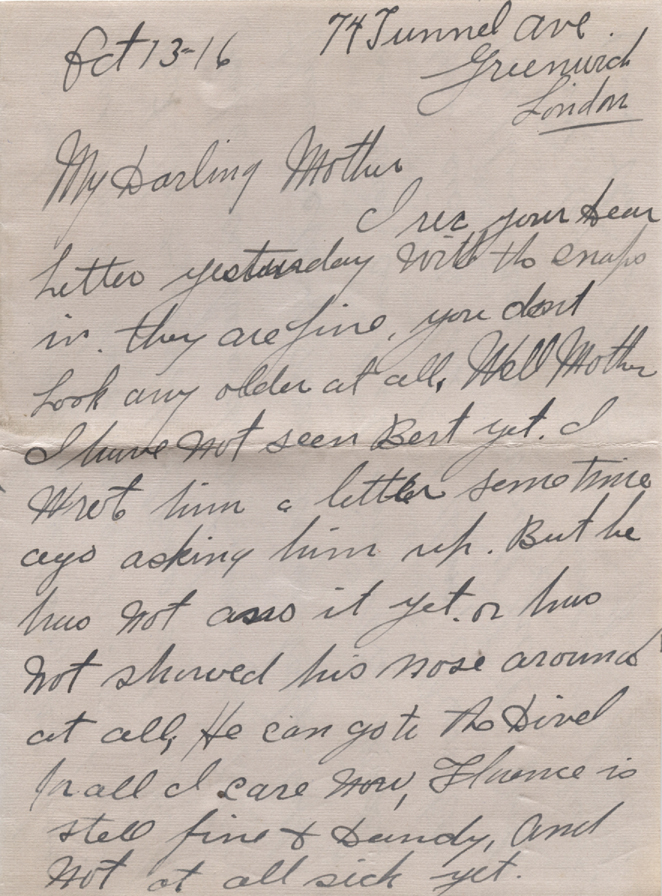 Oct 13-16
74 Tunnel Ave.
Greenwich
London
My Darling Mother
I rec your Dear
Letter yesturday With the snaps
in. they are fine, you dont
Look any older at all, Well Mother
I have Not seen Bert yet. I
Wrot him a letter sometime
ago asking him up. But he
has Not ans it yet. or has
Not showed his nose around
at all, He can go to the Divel
for all I care Now, Flurence is
still fine & Dandy, And
Not at all sick yet.